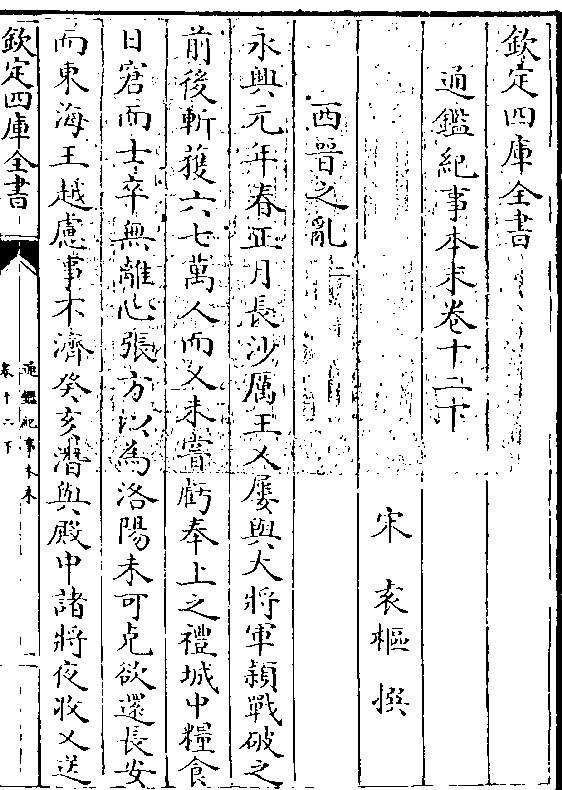 欽定四庫全書
通鑑紀事本末卷十二下
宋 袁樞 撰
西晉之亂
永興元年春正月長沙厲王乂屢與大將軍頴戰破之
前後斬獲六七萬人而乂未嘗虧奉上之禮城中糧食
日窘而士卒無離心張方以為洛陽未可克欲還長安
而東海王越慮事不濟癸亥潛與殿中諸將夜收乂送
欽定四庫全書
通鑑紀事本末
卷十二下
一